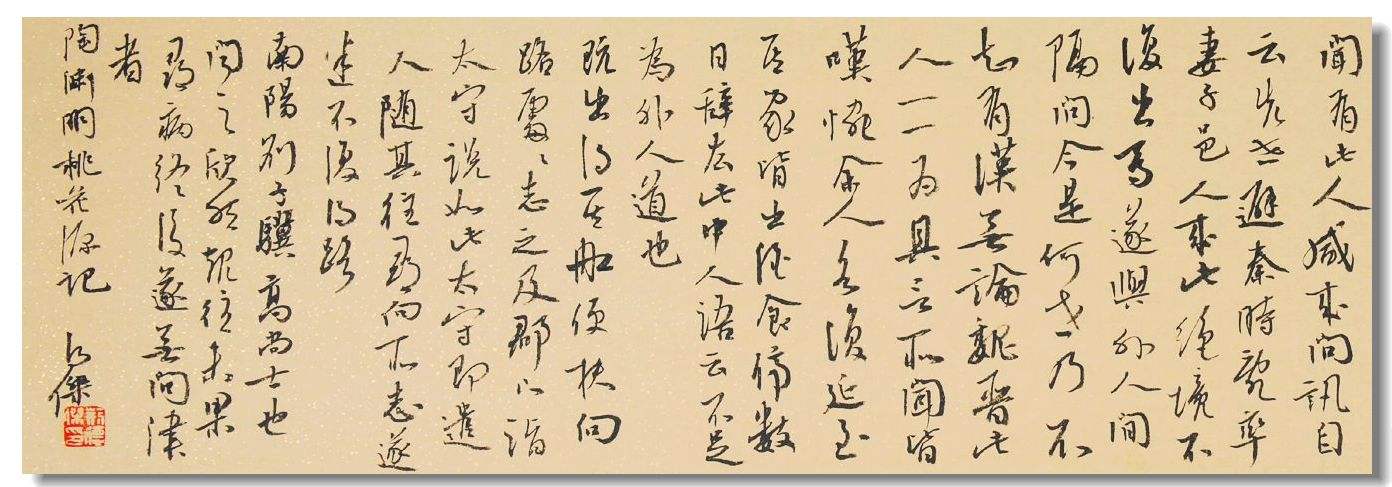 聞有此人咸來問訊自
云先世避秦時亂率
妻子邑人來此絕境不
復出焉遂與外人間
隔問今是何世乃不
知有漢無論魏晉此
人一一為具言所聞皆
嘆惋余人各復延至
其家皆出酒食停數
日辭去此中人語云不足
為外人道也
既出得其船便扶向
路處〻志之及郡下詣
太守說如此太守即遣
人隨其往尋向所志遂
迷不復得路
南陽劉子驥高尚士也
聞之欣然規往未果
尋病終後遂無問津
者
陶淵明桃花源記 傑